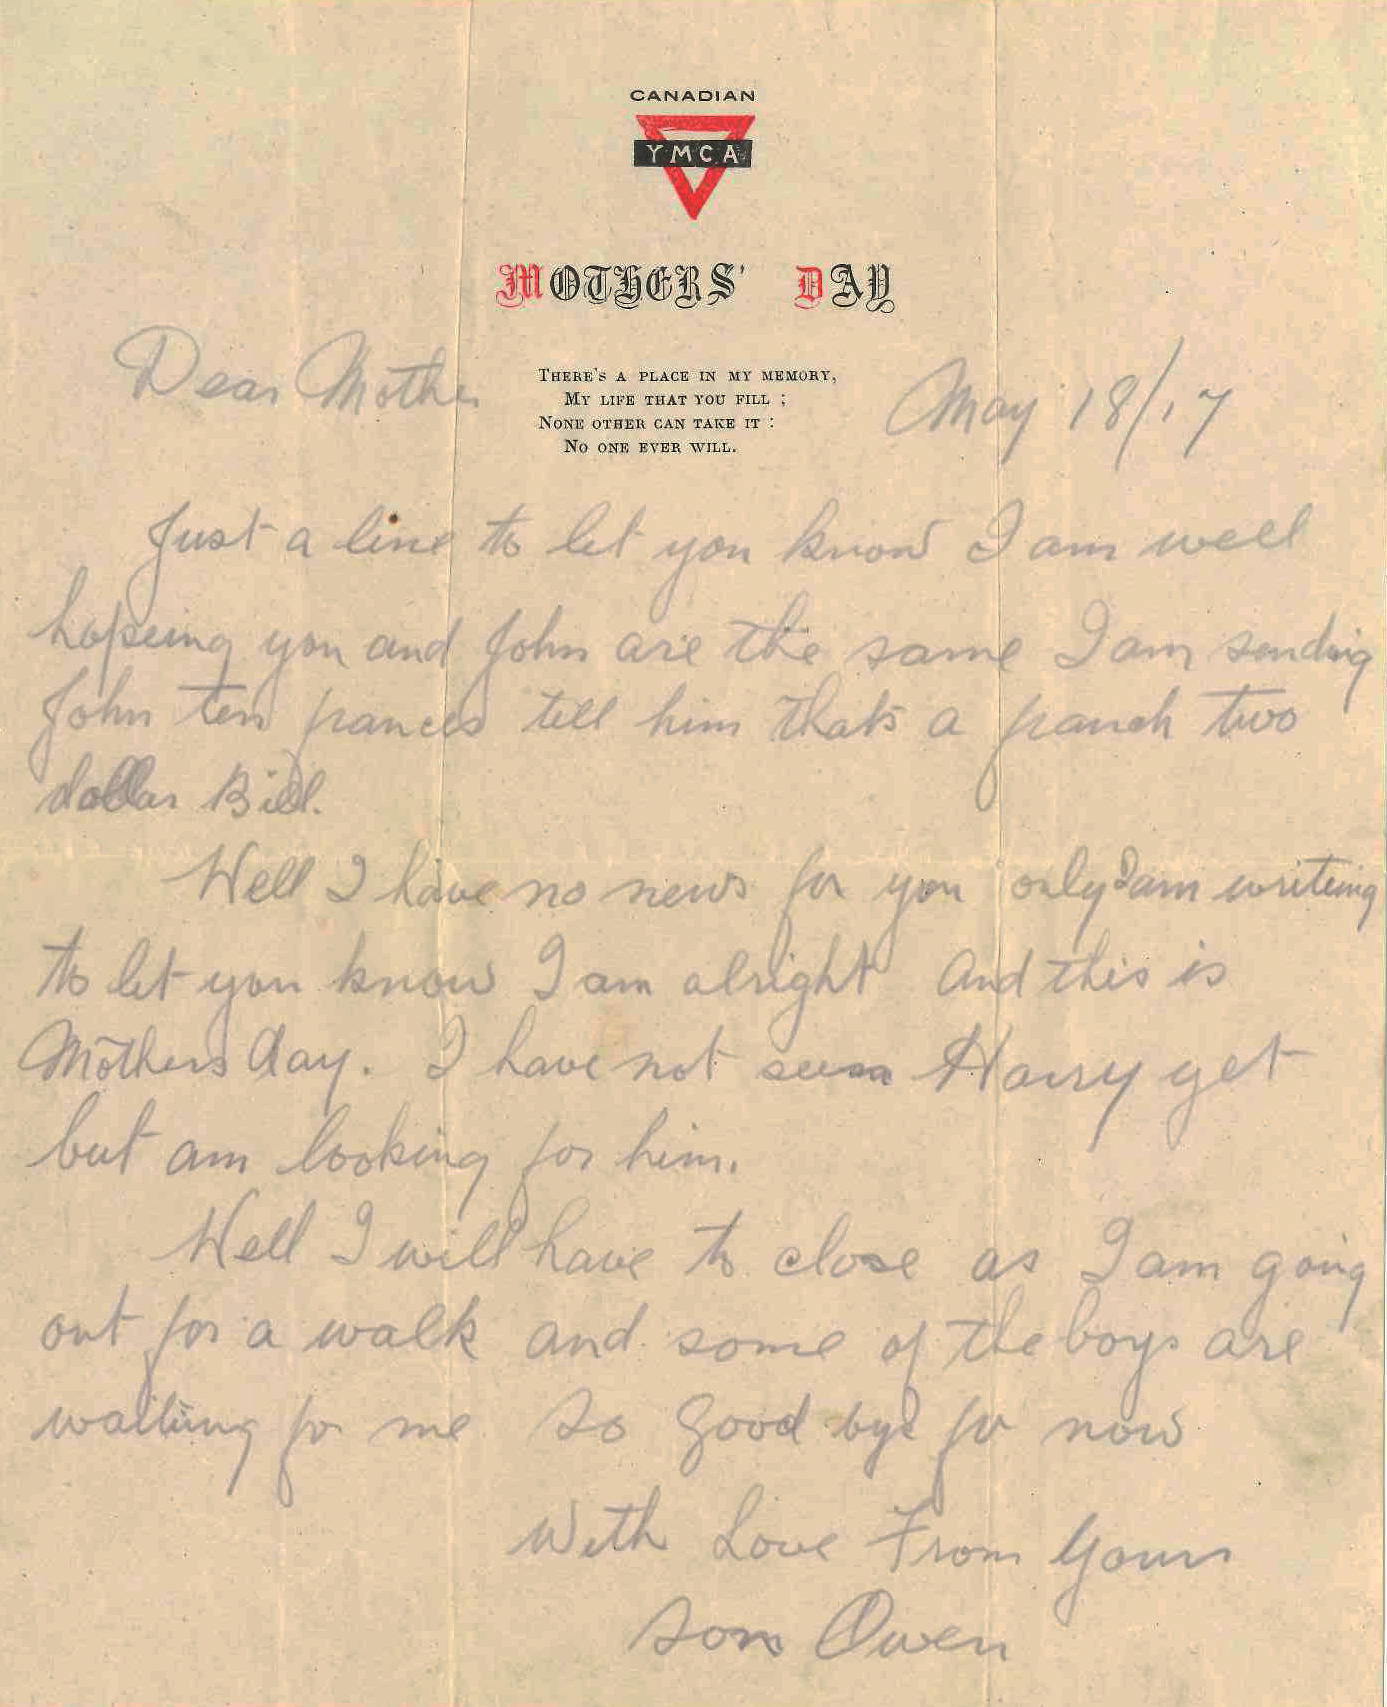 CANADIAN
YMCA
MOTHERS' DAY
THERE'S A PLACE IN MY MEMORY,
MY LIFE THAT YOU FILL ;
NONE OTHER CAN TAKE IT :
NO ONE EVER WILL.
Dear Mother
May 18/17
Just a line to let you know I am well
hopeing you and John are the same I am sending
John ten francs tell him thats a french two
dollar Bill.
Well I have no news for you only I am writeing
to let you know I am alright And this is
Mothers day. I have not seen Harry yet
but am looking for him.
Well I will have to close as I am going
out for a walk and some of the boys are
waiting for me so good bye for now
With Love From Yours
son Owen